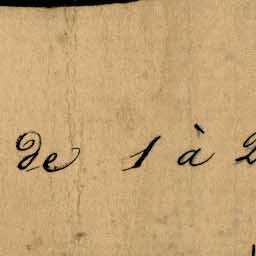 de 1 à 2